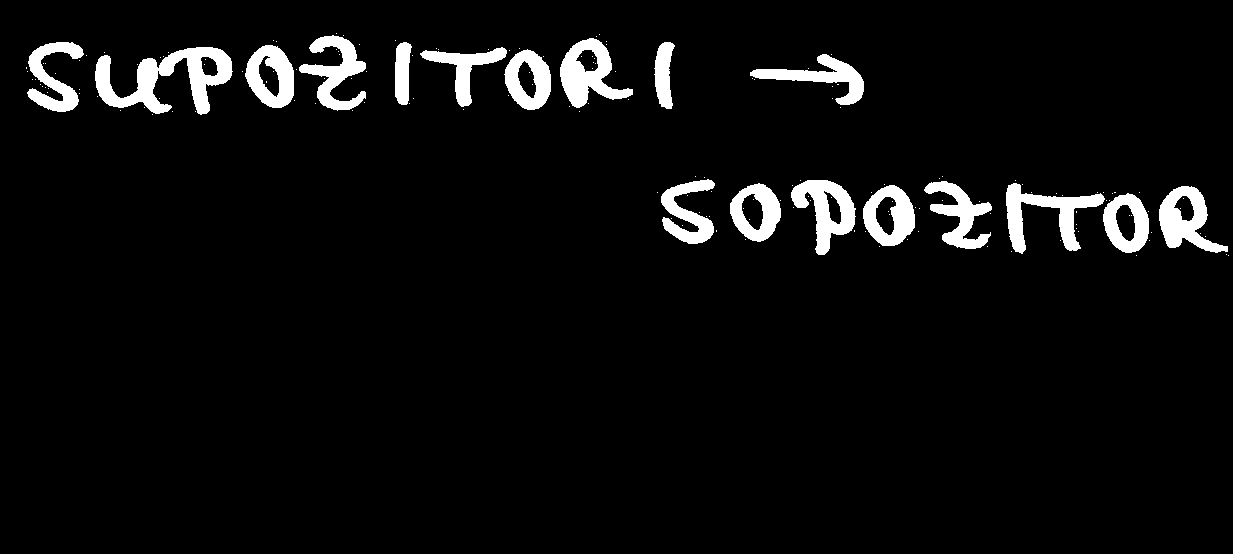 SUPOZITORI →
SOPOZITOR